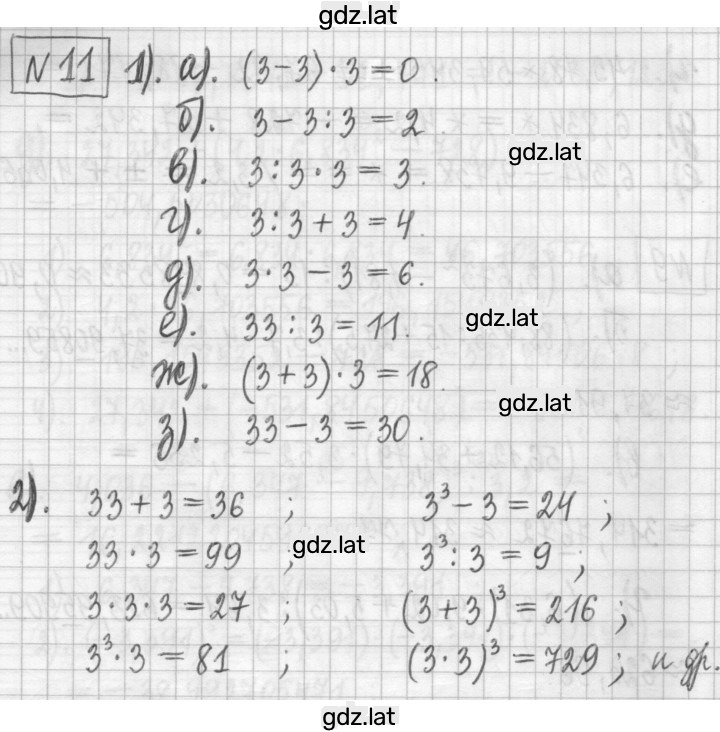 gdz.lat
N 11 1). а). (3-3)·3=0.
б). 3-3:3=2
gdz.lat
в). 3:3·3=3.
г). 3:3+3=4.
д). 3·3-3=6.
е). 33:3=11.
gdz.lat
ж). (3+3)·3=18.
gdz.lat
з). 33-3=30.
2). 33+3=36 ; 3³-3=24 ;
33·3=99 ; gdz.lat 3³:3=9 ;
3·3·3=27 ; (3+3)³=216 ;
3³·3=81 ; (3·3)³=729 ; и др.
gdz.lat